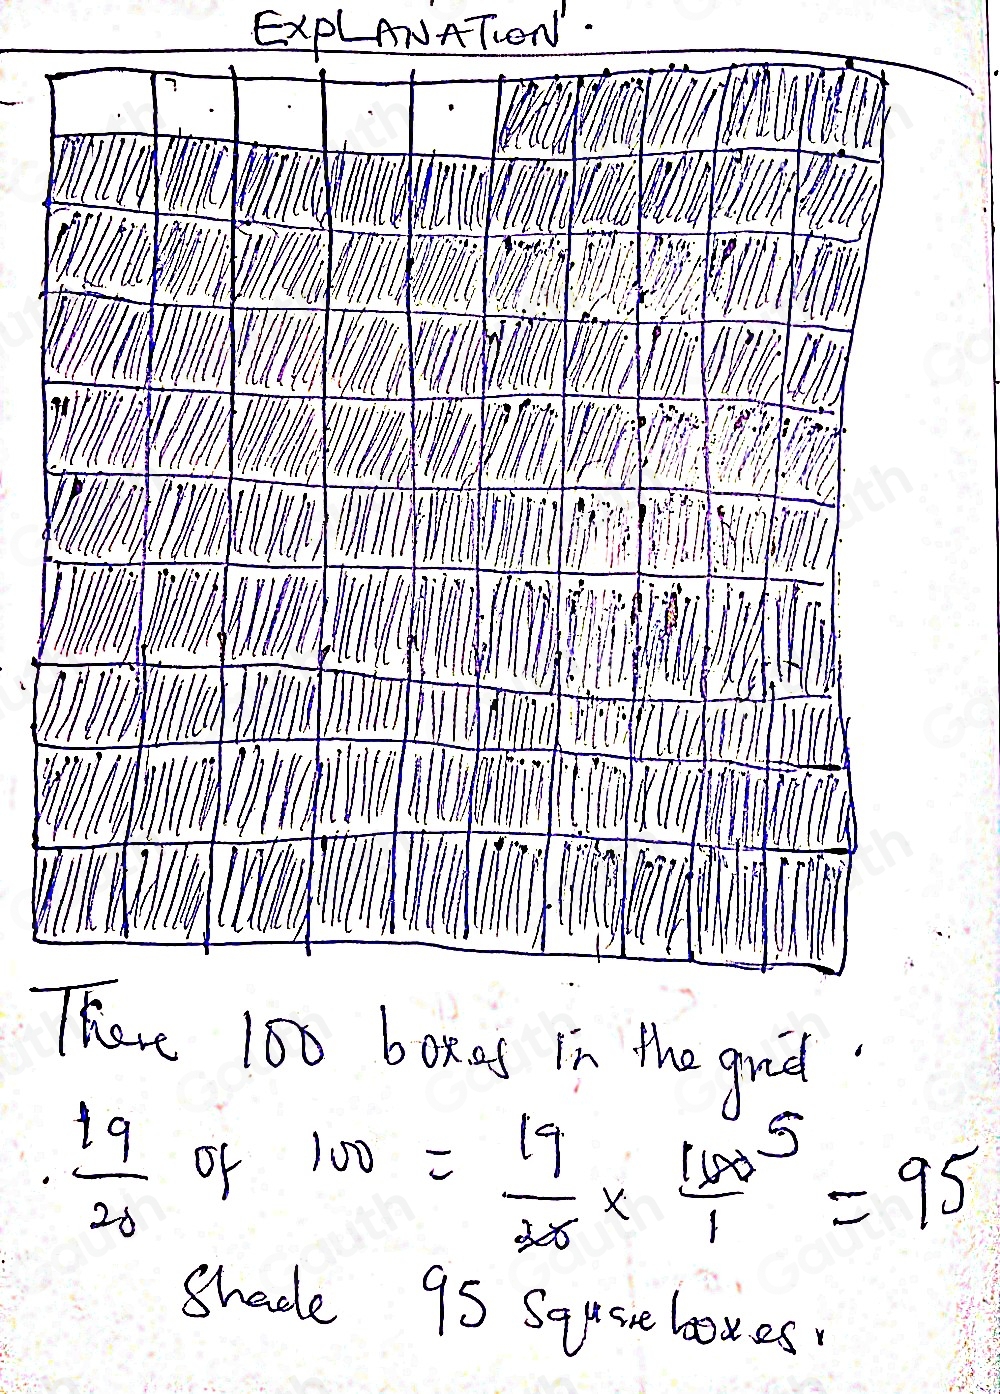 EXPLANATION.
There 100 boxes in the grid.
. 19/20 of 100 = 19/20 × 100/1 5 = 95
Shade 95 square boxes.